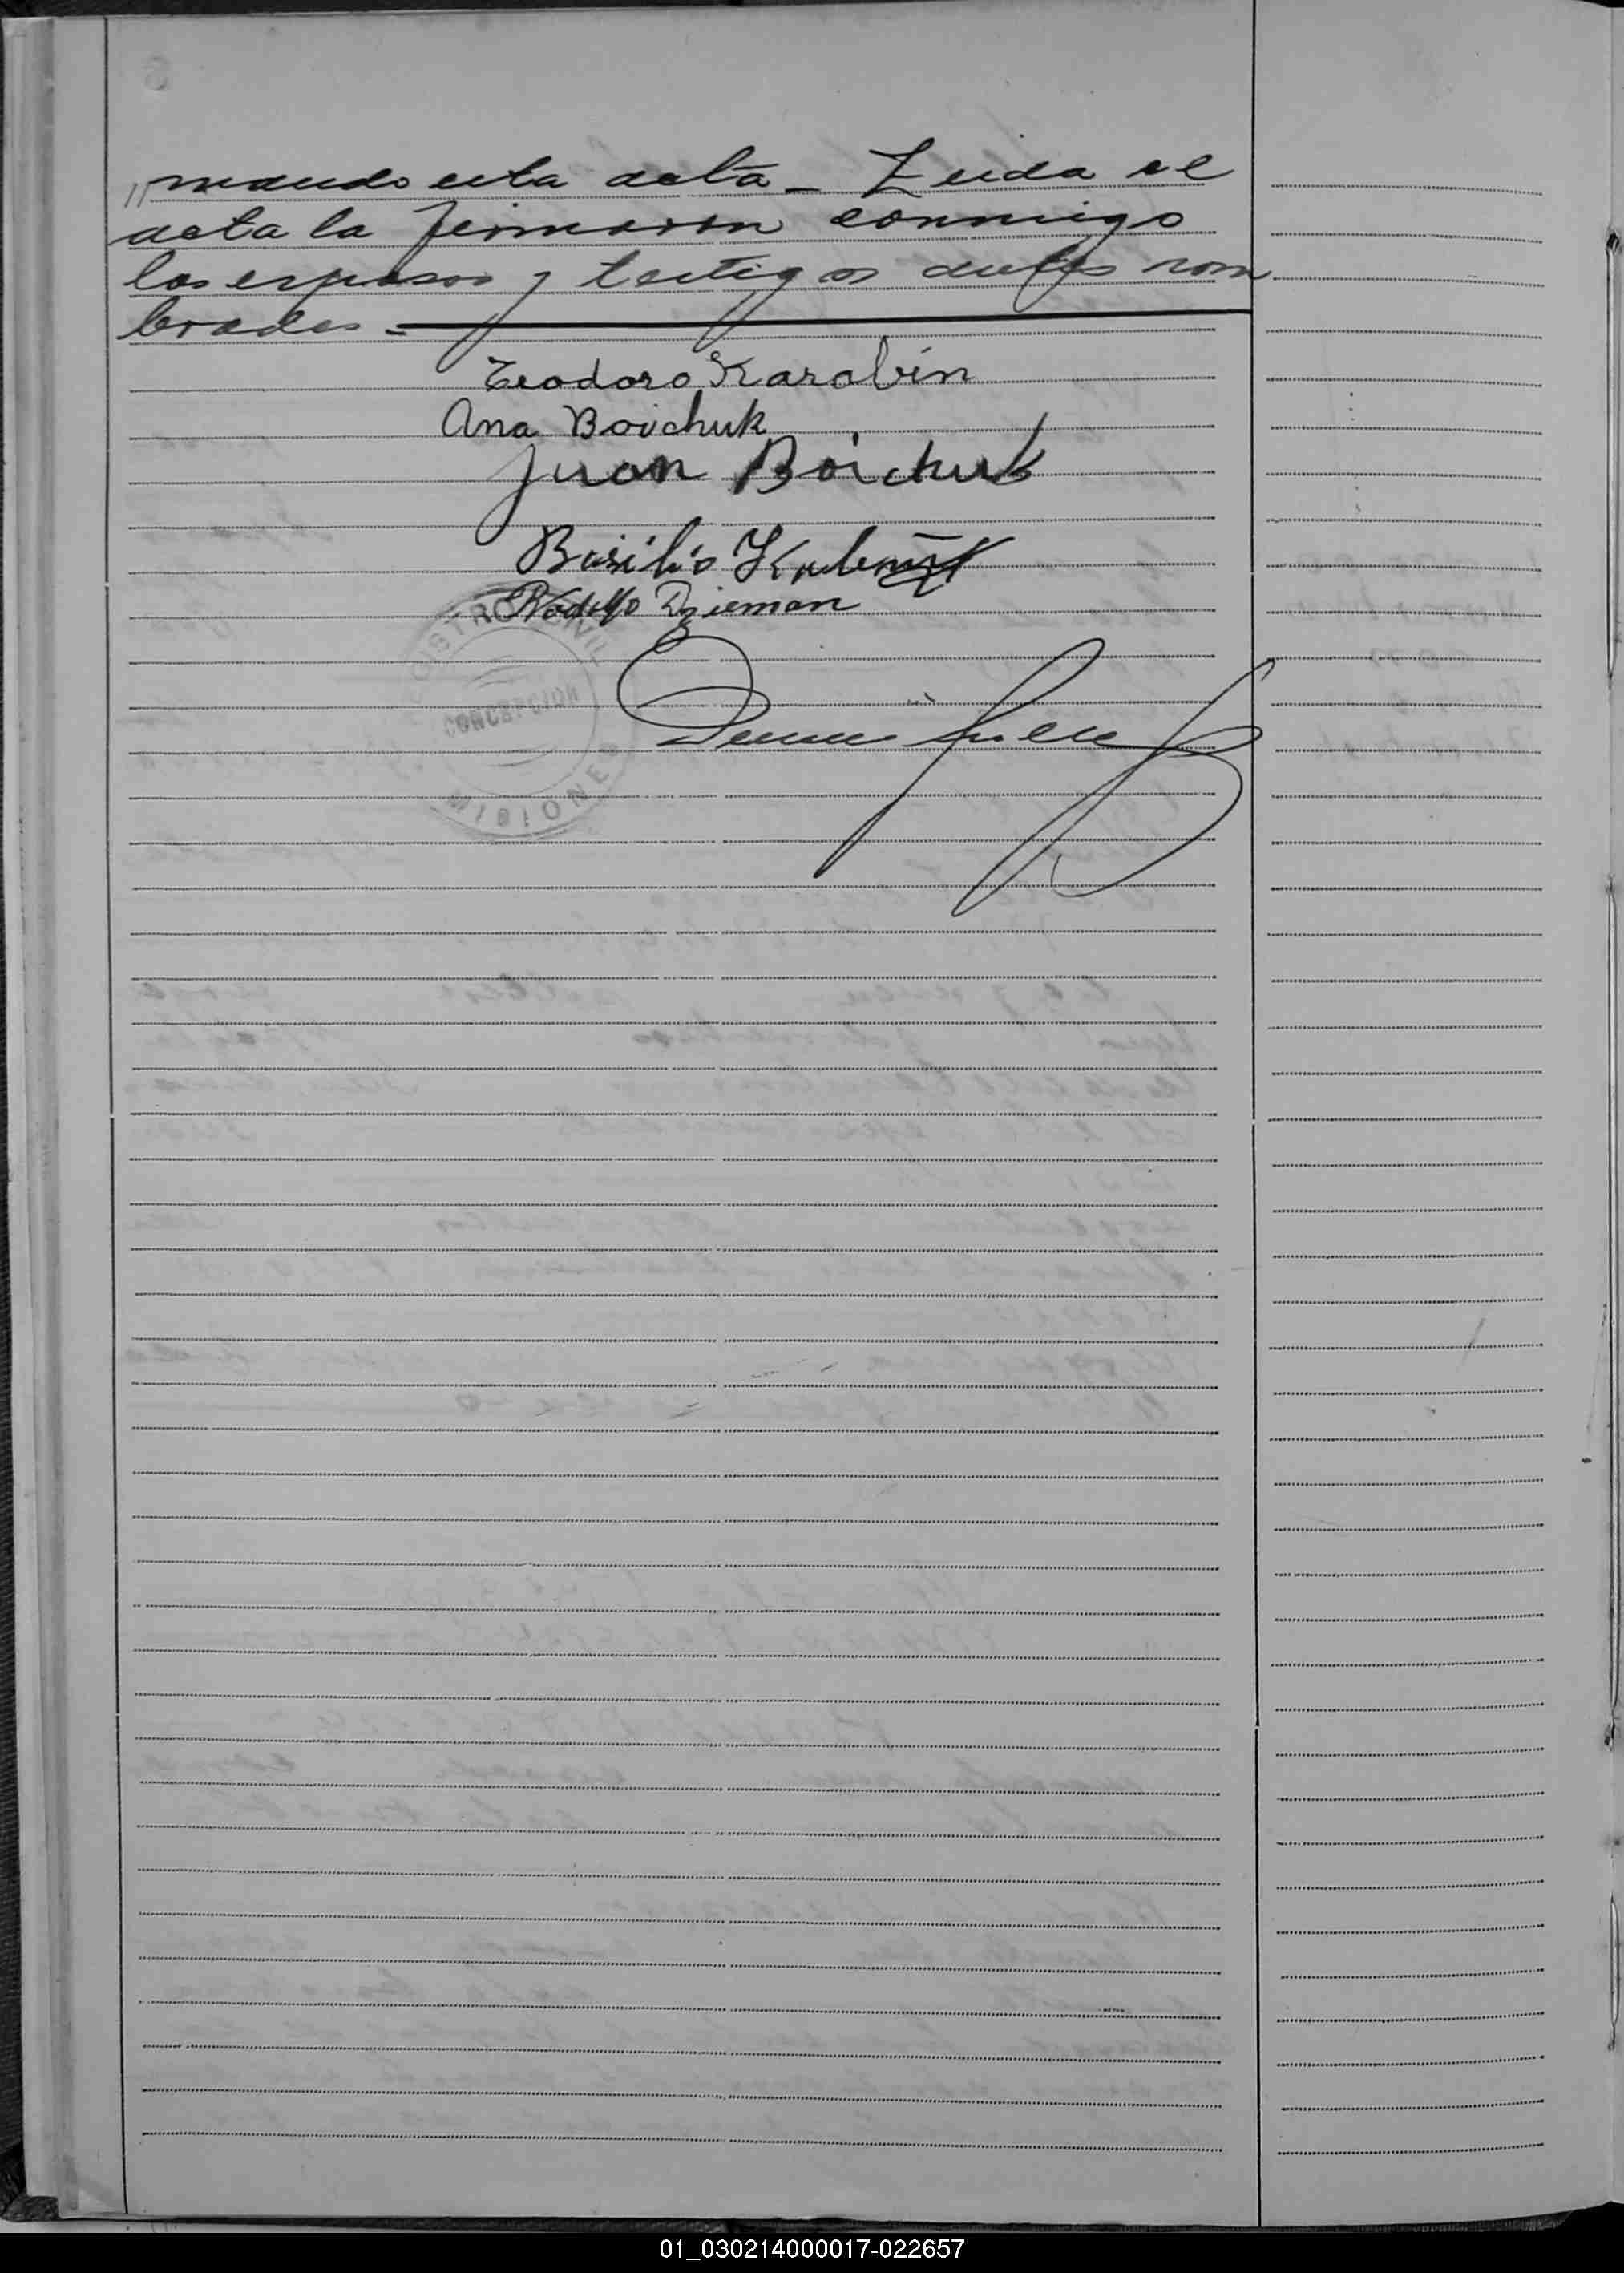 "mando esta acta_ Leida el
acta la firmaron conmigo
los esposos y testigos antes nom
brados -
Teodoro Karabin
Ana Boichuk
Juan Boichuk
Basilio
Rodolfo Dzieman
REGISTRO CIVIL
CONCEPCION
MISIONES
01_030214000017-022657